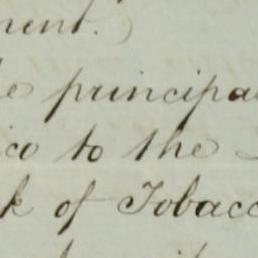 ment.
he principa
ico to the
k of Tobacc